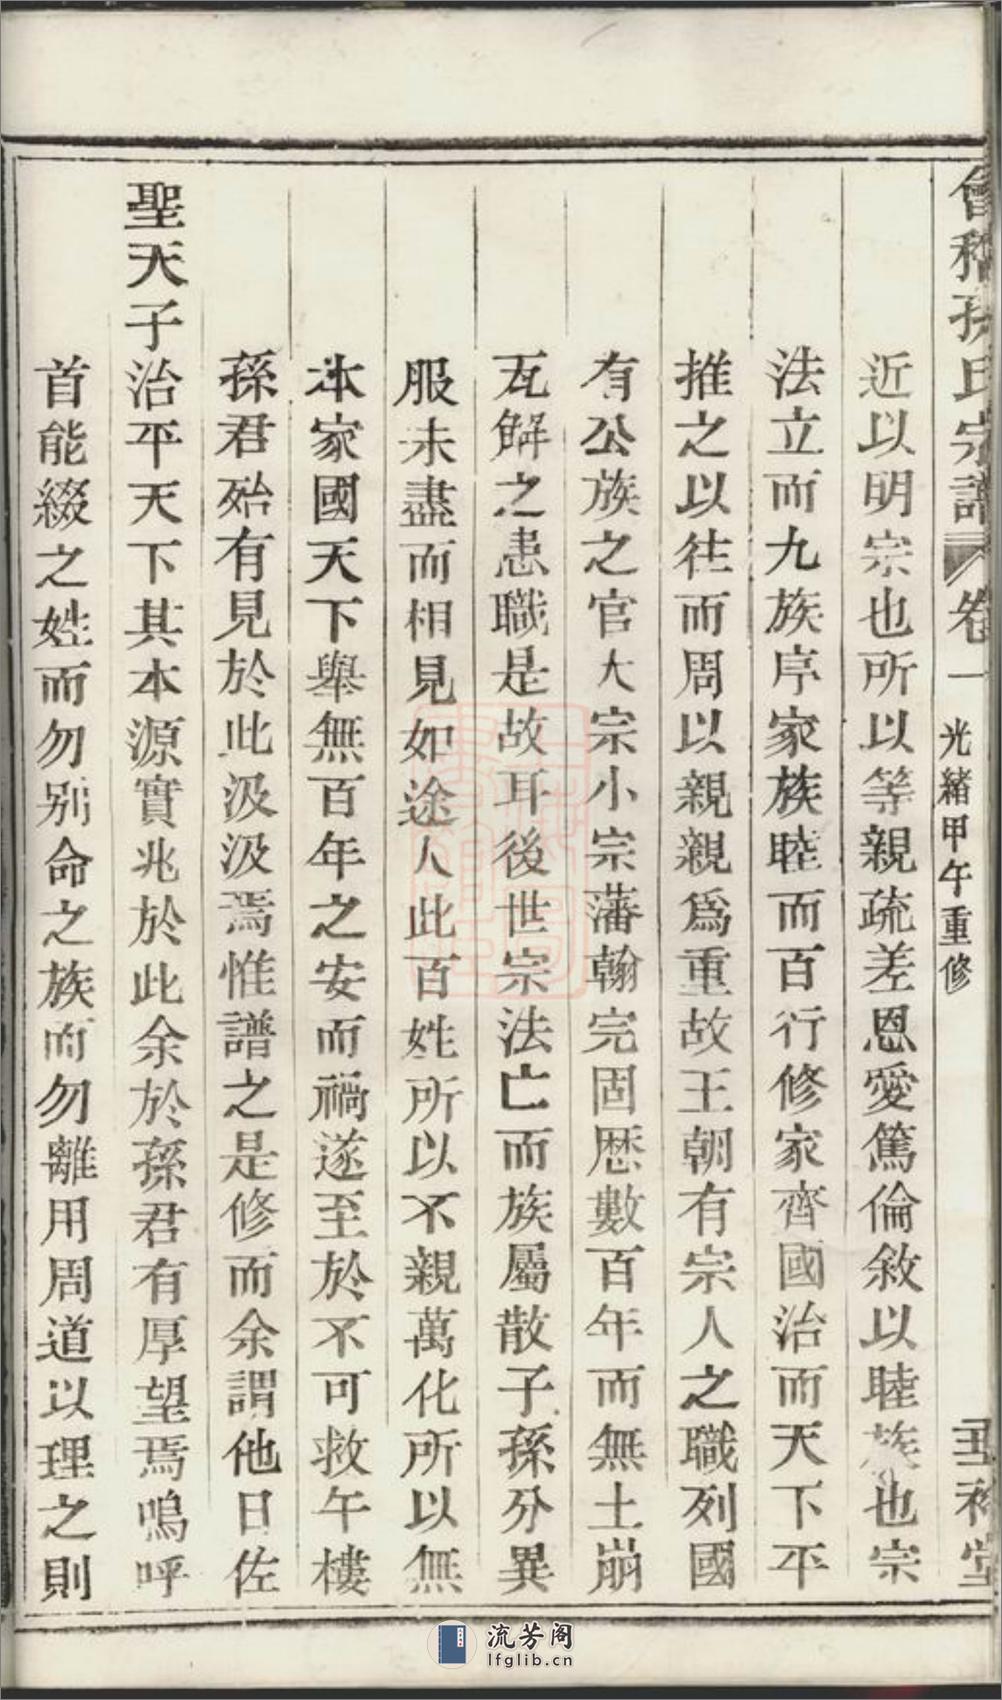 會稽孫氏宗譜 卷一 光緒甲午重修
近以明宗也所以等親疏差恩愛篤倫敘以睦族也宗
法立而九族序家族睦而百行修家齊國治而天下平
推之以往而周以親親爲重故王朝有宗人之職列國
有公族之官大宗小宗藩翰完固歷數百年而無土崩
瓦解之患職是故耳後世宗法亡而族屬散子孫分異
服未盡而相見如途人此百姓所以不親萬化所以無
本家國天下舉無百年之安而禍遂至於不可救午樓
孫君殆有見於此汲汲焉惟譜之是修而余謂他日佐
聖天子治平天下其本源實兆於此余於孫君有厚望焉嗚呼
首能綴之姓而勿別命之族而勿離用周道以理之則
流芳阁
lfglib.cn